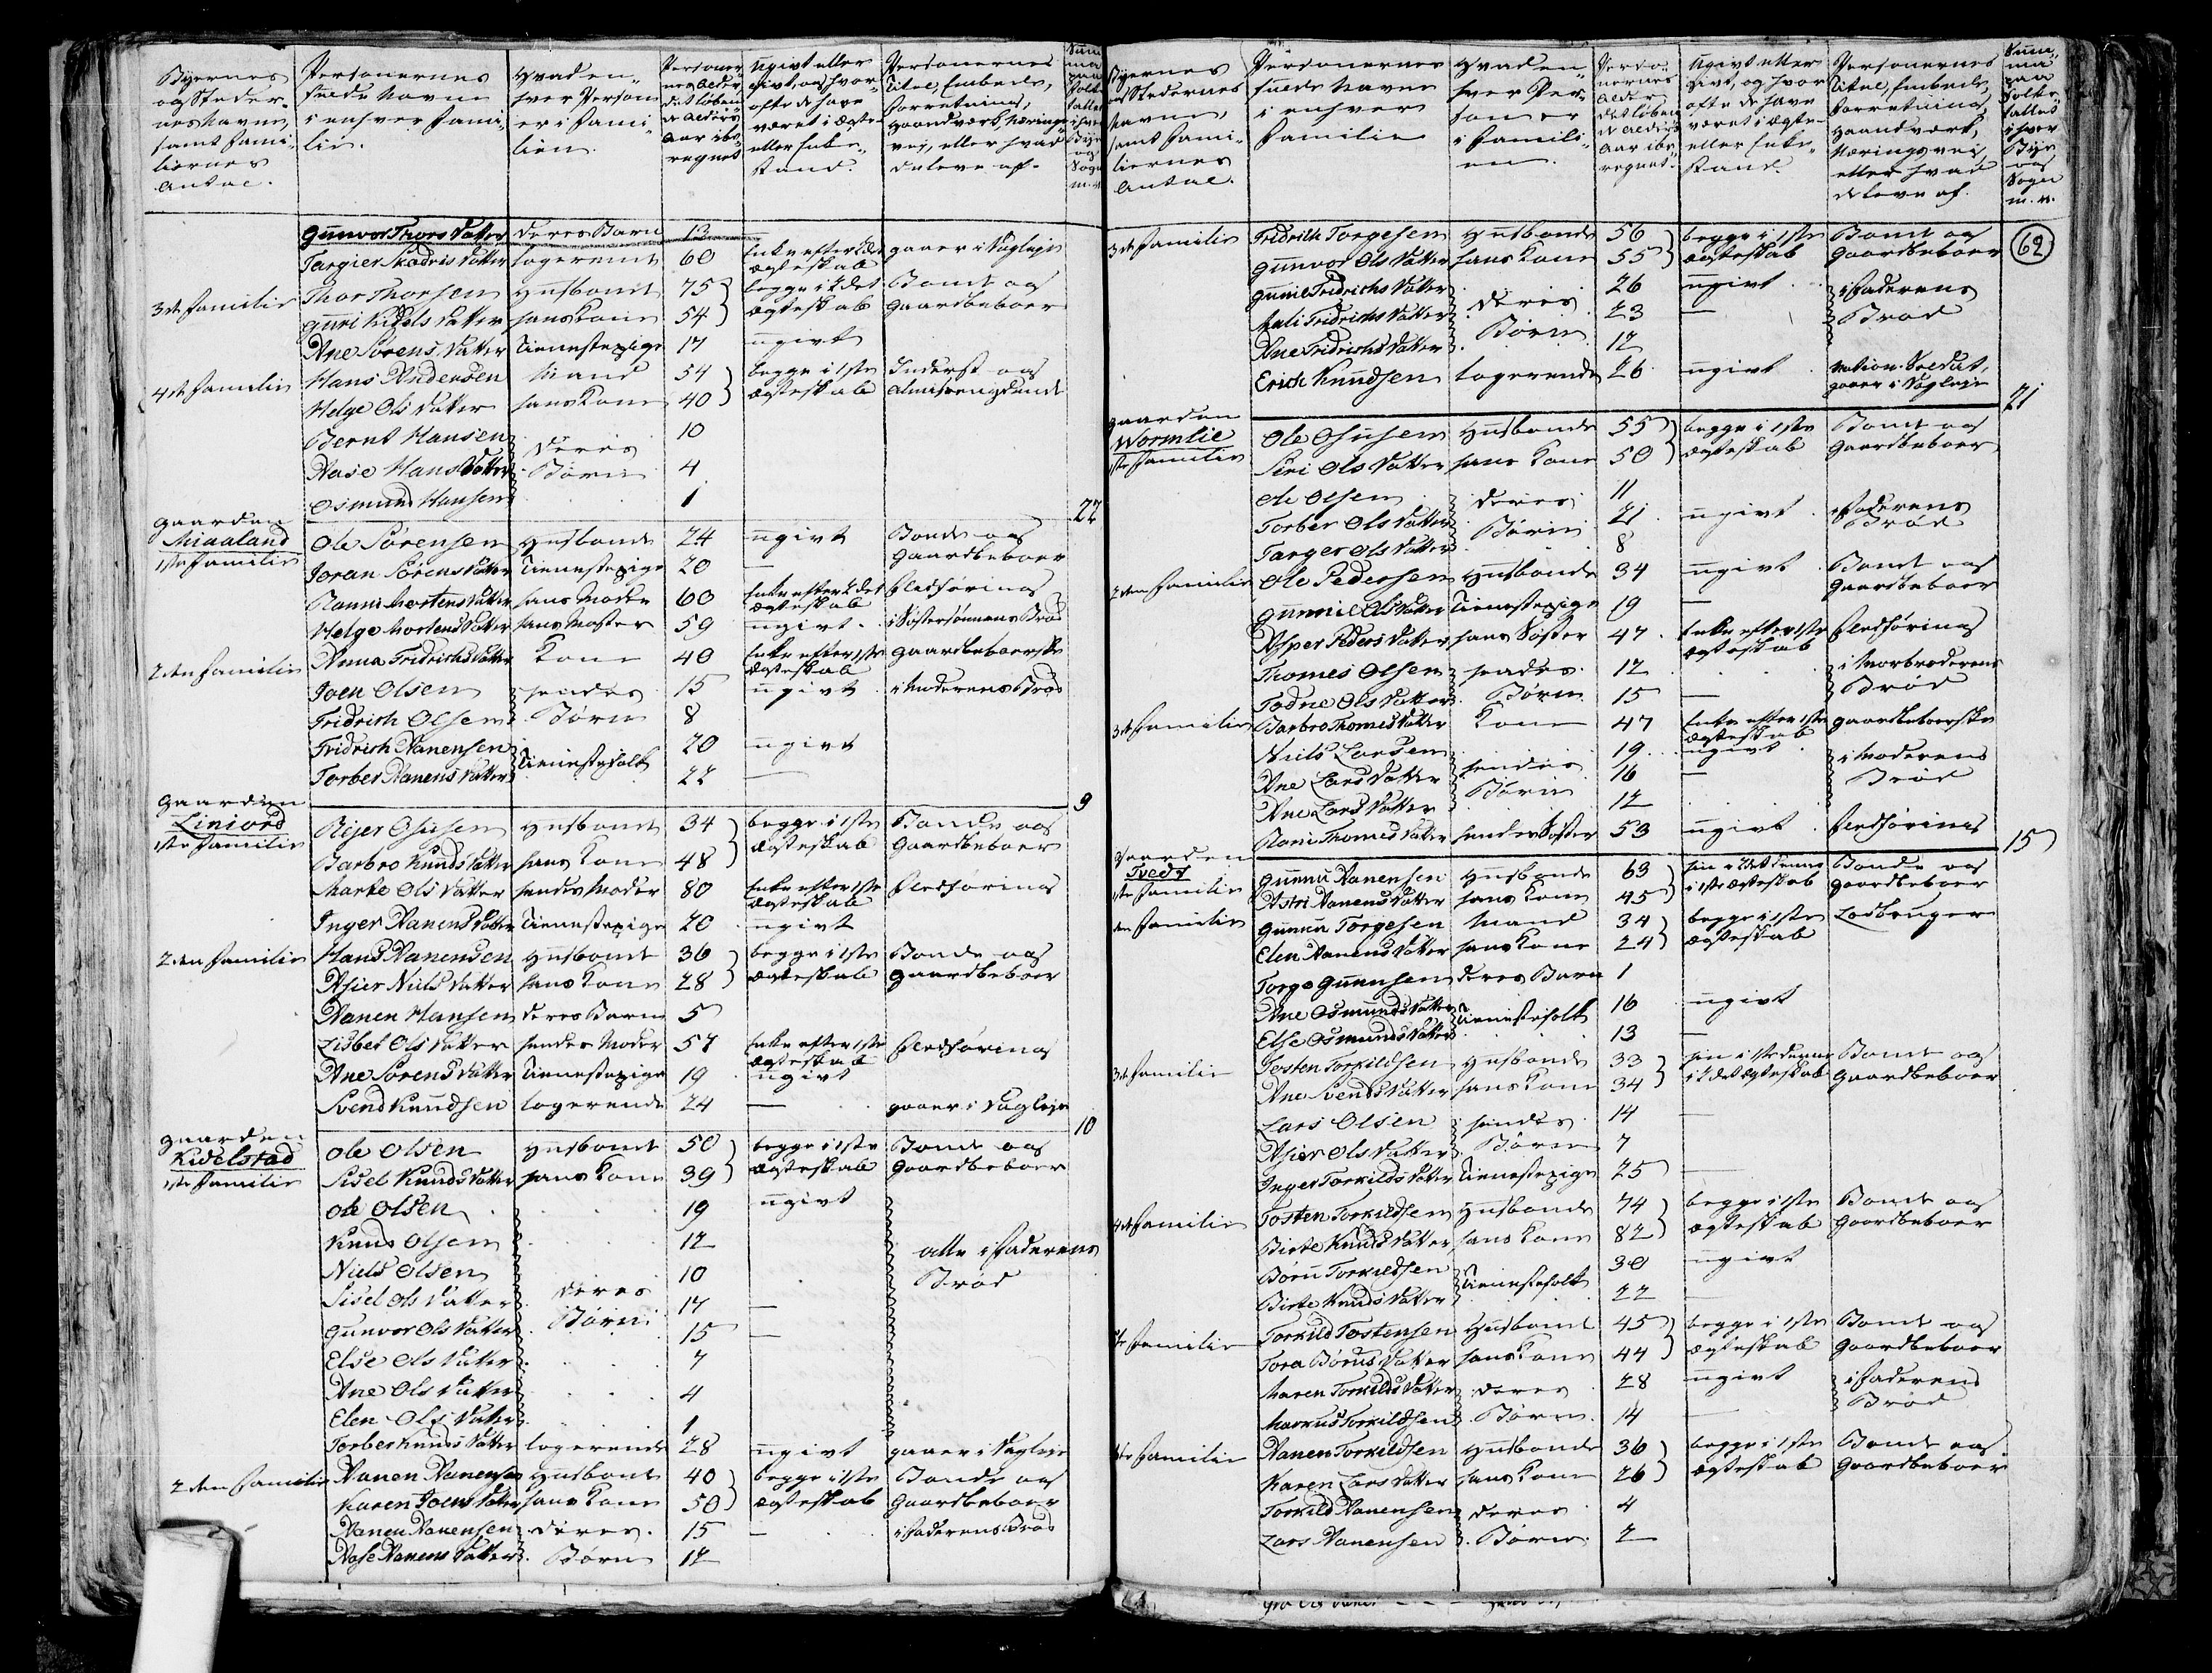 Byernes og Steder- nes Navne, samt Fami- liernes Antal. | Personernes fulde Navne i enhver Fami- lie. | Hvad en- hver Person er i Fami- lien. | Personer- nes Alder, det løben- de Alders Aar ibe- regnet | Ugivt eller givt, og hvor ofte de have været i Ægte- eller Enke- stand. | Personernes Titel, Embede, Forretning, Haandværk, Nærings- vej, eller hvad de leve af.
Gunvor Thors Datter | deres Barn | 13
Targier Skadvis Datter | logerende | 60 | Enke efter 2det ægteskab | gaaer i Dagleje
3de Familie | Thor Thorsen | Huusbonde | 75 | begge i 2det ægteskab | Bonde og Gaardbeboer
Guri Kidels Datter | hans Kone | 54
Ane Sørens Datter | Tienestepige | 17 | ugivt
4de Familie | Hans Andersen | Mand | 54 | begge i 1ste ægteskab | Inderst og almisenydende
Helge Ols Datter | hans Kone | 40
Bernt Hansen | deres Børn | 10
Aase Hans Datter | 4
Osmund Hansen | 1 | 22
Gaarden Miaaland 1ste Familie | Ole Sørensen | Huusbonde | 24 | ugivt | Bonde og Gaardbeboer
Joran Sørens Datter | Tienestepige | 20 | —
Ranni Mortens Datter | hans Moder | 60 | Enke efter 2det ægteskab | Fledføring
Helge Mortens Datter | hans Moster | 59 | ugivt | i Søstersønnens Brød
2den Familie | Anna Fridrichs Datter | Kone | 40 | Enke efter 1ste ægteskab | Gaardbeboerske
Joen Olsen | hendes Børn | 15 | ugivt | i Moderens Brød
Fridrich Olsen | 8
Fridrich Nanensen | Tienestefolk | 20 | ugivt
Torber Nanens Datter | 22 | — | 9
Gaarden Liniord 1ste Familie | Rejer Osusen | Huusbonde | 34 | begge i 1ste ægteskab | Bonde og Gaardbeboer
Barbro Knuds Datter | hans Kone | 48
Marte Ols Datter | hendes Moder | 80 | Enke efter 1ste ægteskab | Fledføring
Inger Nanens Datter | Tienestepige | 20 | ugivt
2den Familie | Hans Nanensen | Huusbonde | 36 | begge i 1ste ægteskab | Bonde og Gaardbeboer
Asier Niels Datter | hans Kone | 28
Nanen Hansen | deres Barn | 5
Lisbet Ols Datter | hendes Moder | 57 | Enke efter 1ste ægteskab | Fledføring
Ane Sørens Datter | Tienestepige | 19 | ugivt
Svend Knudsen | logerende | 24 | — | gaaer i Dagleje | 10
Gaarden Kidelstad 1ste Familie | Ole Olsen | Huusbonde | 50 | begge i 1ste ægteskab | Bonde og Gaardbeboer
Sisel Knuds Datter | hans Kone | 39
Ole Olsen | deres Børn | 19 | ugivt | alle i Faderens Brød
Knud Olsen | 12
Niels Olsen | 10
Sisel Ols Datter | 17 | —
Gunvor Ols Datter | 15 | —
Else Ols Datter | 7
Ane Ols Datter | 4
Elen Ols Datter | 1
Torber Knuds Datter | logerende | 28 | ugivt | gaaer i Dagleje
2den Familie | Nanen Nanensen | Huusbonde | 40 | begge i 1ste ægteskab | Bonde og Gaardbeboer
Karen Joens Datter | hans Kone | 50
Nanen Nanensen | deres Børn | 15 | — | i Faderens Brød
Aase Nanens Datter | 12
Byernes og Stedernes Navne, samt Fami- liernes Antal. | Personernes fulde Navne i enhver Familie | Hvad en- hver Per- son er i Famili- en. | Perso- nernes Alder, det løben- de Alders Aar ibe- regnet. | Ugivt eller givt, og hvor ofte de have været i Ægte- eller Enke- stand. | Personernes Titel, Embede, Forretning, Haandværk, Næringsvej, eller hvad de leve af. | Sum- ma paa Folke- tallet i hver Bye og Sogn m. v.
62
3de Familie | Fridrich Torgesen | Huusbonde | 56 | begge i 1ste ægteskab | Bonde og Gaardbeboer
Gunvor Ols Datter | hans Kone | 55
Gunil Fridrichs Datter | deres Børn | 26 | ugivt | i Faderens Brød
Mali Fridrichs Datter | 23 | —
Ane Fridrichs Datter | 12
Erich Knudsen | logerende | 26 | ugivt | Nation. Soldat, gaaer i Dagleje | 21
Gaarden Wormlie 1ste Familie | Ole Osusen | Huusbonde | 55 | begge i 1ste ægteskab | Bonde og Gaardbeboer
Siri Ols Datter | hans Kone | 50
Ole Olsen | deres Børn | 11
Torber Ols Datter | 21 | ugivt | i Faderens Brød
Targer Ols Datter | 8
2den Familie | Ole Pedersen | Huusbonde | 34 | ugivt | Bonde og Gaardbeboer
Gunnil Ols Datter | Tienestepige | 19 | —
Asper Peders Datter | hans Søster | 47 | Enke efter 1ste ægteskab | Fledføring
Thomes Olsen | hendes Børn | 12 | i Morbroderens Brød
Todne Ols Datter | 15 | —
3de Familie | Barbro Thomes Datter | Kone | 47 | Enke efter 1ste ægteskab | Gaardbeboerske
Niels Larsen | hendes Børn | 19 | ugivt | i Moderens Brød
Ane Lars Datter | 16 | —
Ane Lars Datter | 12
Rani Thomes Datter | hendes Søster | 53 | ugivt | Fledføring | 15
Gaarden Tvedt 1ste Familie | Gunnu Nanensen | Huusbonde | 63 | han i 2det denne i 1ste ægteskab | Bonde og Gaardbeboer
Astri Nanens Datter | hans Kone | 45
den Familie | Gunnu Torgesen | Mand | 34 | begge i 1ste ægteskab | Lodbruger
Elen Nanens Datter | hans Kone | 24
Torgo Gunnusen | deres Barn | 1
Ane Osmunds Datter | Tienestefolk | 16 | ugivt
Else Osmunds Datter | 13 | —
3de Familie | Tosten Torkildsen | Huusbonde | 33 | han i 1ste denne i 2det Ægteskab | Bonde og Gaardbeboer
Ane Svends Datter | hans Kone | 34
Lars Olsen | hendes Børn | 14 | —
Asier Ols Datter | 7
Inger Torkilds Datter | Tienestepige | 25 | —
4de Familie | Tosten Torkildsen | Huusbonde | 74 | begge i 1ste ægteskab | Bonde og Gaardbeboer
Birte Knuds Datter | hans Kone | 82
Børu Torkildsen | Tienestefolk | 30 | ugivt
Birte Knuds Datter | 22 | —
5te Familie | Torkild Tostensen | Huusbonde | 45 | begge i 1ste ægteskab | Bonde og Gaardbeboer
Tora Børus Datter | hans Kone | 44
Maren Torkilds Datter | deres Børn | 28 | ugivt | i Faderens Brød
Markus Torkildsen | 14 | —
6te Familie | Nanen Torkildsen | Huusbonde | 36 | begge i 1ste ægteskab | Bonde og Gaardbeboer
Karen Lars Datter | hans Kone | 26
Torkild Nanensen | deres Børn | 4
Lars Nanensen | 2